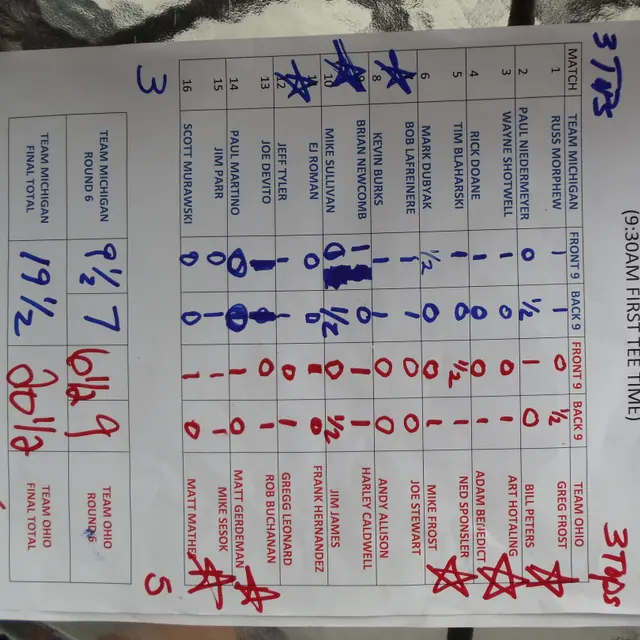 (9:30AM FIRST TEE TIME)
3 3
MATCH TEAM MICHIGAN FRONT 9 BACK 9 FRONT 9 BACK 9 TEAM OHIO
1 RUSS MORPHEW 1 1 0 1/2 GREG FROST
2 PAUL NIEDERMEYER 0 1/2 1 0 BILL PETERS
3 WAYNE SHOTWELL 1 0 0 1 ART HOTALING
4 RICK DOANE 1 0 0 1 ADAM BENEDICT
5 TIM BLAHARSKI 1 0 1/2 1 NED SPONSLER
6 MARK DUBYAK 1/2 0 0 1 MIKE FROST
BOB LAFREINERE 1 1 0 0 JOE STEWART
8 KEVIN BURKS 1 1 0 0 ANDY ALLISON
BRIAN NEWCOMB 1 0 1 1 HARLEY CALDWELL
10 MIKE SULLIVAN 0 1/2 0 1/2 JIM JAMES
11 EJ ROMAN 0 0 1 FRANK HERNANDEZ
12 JEFF TYLER 1 1 0 1 GREGG LEONARD
13 JOE DEVITO 1 0 1 ROB BUCHANAN
14 PAUL MARTINO 0 0 1 0 MATT GERDEMAN
15 JIM PARR 0 1 1 1 MIKE SESOK
16 SCOTT MURAWSKI 0 0 1 0 MATT
3 5
TEAM MICHIGAN ROUND 6 9 1/2 7 6 1/2 9 TEAM OHIO ROUND 6
TEAM MICHIGAN FINAL TOTAL 19 1/2 20 1/2 TEAM OHIO FINAL TOTAL